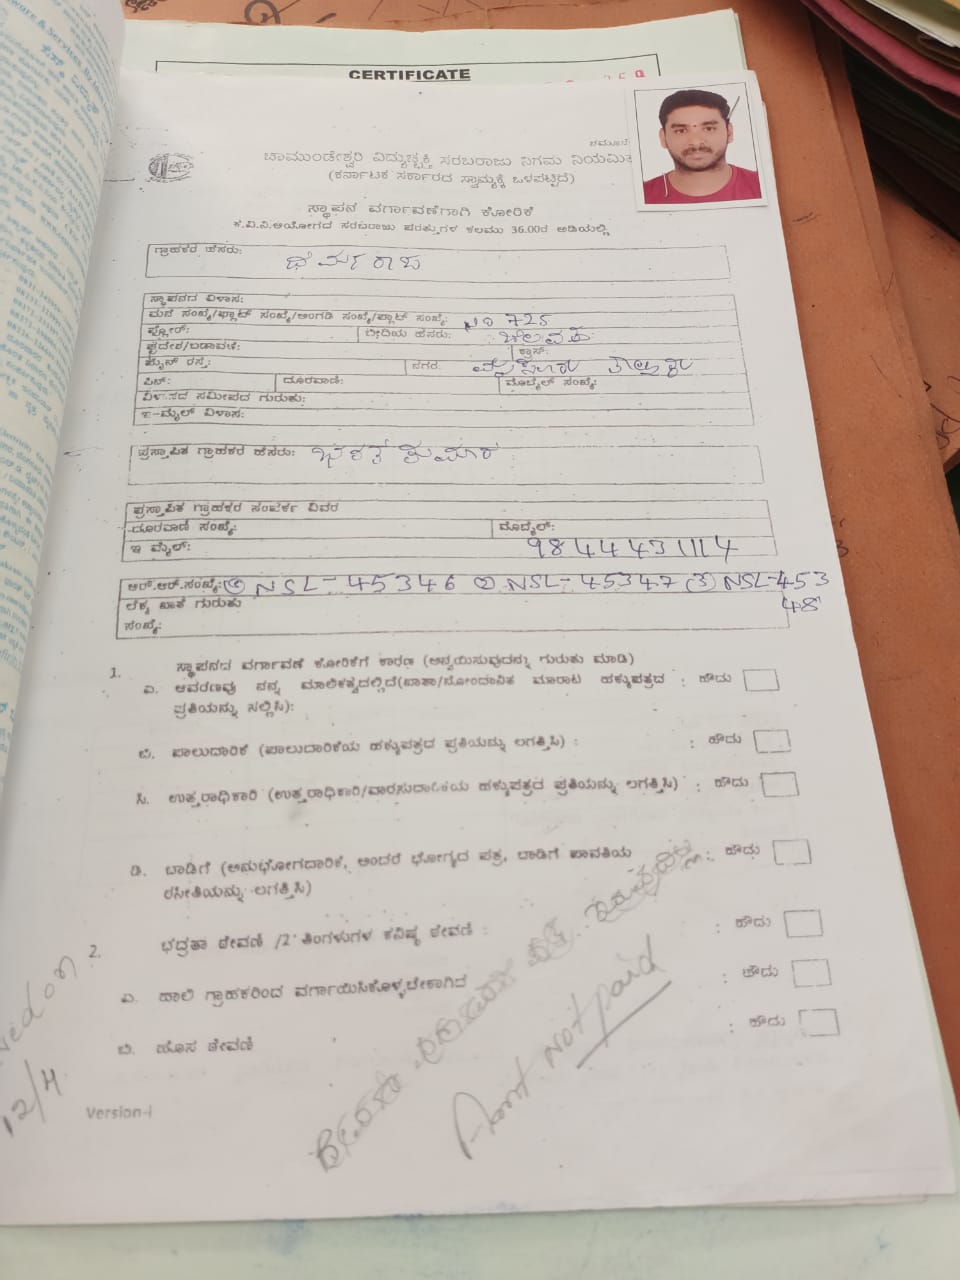 CERTIFICATE
ಚಾಮುಂಡೇಶ್ವರಿ ವಿದ್ಯುಚ್ಛಕ್ತಿ ಸರಬರಾಜು ನಿಗಮ ನಿಯಮಿತ
(ಕರ್ನಾಟಕ ಸರ್ಕಾರದ ಸ್ವಾಮ್ಯಕ್ಕೆ ಒಳಪಟ್ಟಿದೆ)
ಸ್ಥಾಪನ ವರ್ಗಾವಣೆಗಾಗಿ ಕೋರಿಕೆ
ಕ.ವಿ.ನಿ.ಆಯೋಗದ ಸರಬರಾಜು ಷರತ್ತುಗಳ ಕಲಮು 36.00ರ ಅಡಿಯಲ್ಲಿ
ಗ್ರಾಹಕರ ಹೆಸರು: ಧರ್ಮರಾಜು
ಸ್ಥಾಪನದ ವಿಳಾಸ:
ಮನೆ ಸಂಖ್ಯೆ/ಫ್ಲಾಟ್ ಸಂಖ್ಯೆ/ಅಂಗಡಿ ಸಂಖ್ಯೆ/ಪ್ಲಾಟ್ ಸಂಖ್ಯೆ: NO 725
ಫ್ಲೋರ್: ಬೀದಿಯ ಹೆಸರು:
ಪ್ರದೇಶ/ಬಡಾವಣೆ: ಕ್ರಾಸ್:
ಮೈನ್ ರಸ್ತೆ: ನಗರ:
ಪಿನ್: ದೂರವಾಣಿ: ಮೊಬೈಲ್ ಸಂಖ್ಯೆ:
ವಿಳಾಸದ ಸಮೀಪದ ಗುರುತು:
ಇ-ಮೈಲ್ ವಿಳಾಸ:
ಪ್ರಸ್ತಾಪಿತ ಗ್ರಾಹಕರ ಹೆಸರು: ಭರತ್ ಕುಮಾರ
ಪ್ರಸ್ತಾಪಿತ ಗ್ರಾಹಕರ ಸಂಪರ್ಕ ವಿವರ
ದೂರವಾಣಿ ಸಂಖ್ಯೆ: ಮೊಬೈಲ್:
ಇ ಮೈಲ್: 9844431114
ಆರ್.ಆರ್.ಸಂಖ್ಯೆ: ① NSL-45346 ② NSL-45347 (3) NSL-453
48
ಲೆಕ್ಕ ಖಾತೆ ಗುರುತು
ಸಂಖ್ಯೆ:
1. ಸ್ಥಾಪನದ ವರ್ಗಾವಣೆ ಕೋರಿಕೆಗೆ ಕಾರಣ (ಅನ್ವಯಿಸುವುದನ್ನು ಗುರುತು ಮಾಡಿ)
ಎ. ಆವರಣವು ನನ್ನ ಮಾಲಿಕತ್ವದಲ್ಲಿದೆ(ಖಾತಾ/ನೋಂದಾವಿತ ಮಾರಾಟ ಹಕ್ಕುಪತ್ರದ : ಹೌದು
ಪ್ರತಿಯನ್ನು ಸಲ್ಲಿಸಿ):
ಬಿ. ಪಾಲುದಾರಿಕೆ (ಪಾಲುದಾರಿಕೆಯ ಹಕ್ಕುಪತ್ರದ ಪ್ರತಿಯನ್ನು ಲಗತ್ತಿಸಿ) : : ಹೌದು
ಸಿ. ಉತ್ತರಾಧಿಕಾರಿ (ಉತ್ತರಾಧಿಕಾರಿ/ವಾರಸುದಾರಿಕೆಯ ಹಕ್ಕುಪತ್ರದ ಪ್ರತಿಯನ್ನು ಲಗತ್ತಿಸಿ) : ಹೌದು
ಡಿ. ಬಾಡಿಗೆ (ಅನುಭೋಗದಾರಿಕೆ, ಅಂದರೆ ಭೋಗ್ಯದ ಪತ್ರ, ಬಾಡಿಗೆ ಪಾವತಿಯ : ಹೌದು
ರಸೀತಿಯನ್ನು ಲಗತ್ತಿಸಿ)
2. ಭದ್ರತಾ ಠೇವಣಿ /2 ತಿಂಗಳುಗಳ ಕನಿಷ್ಠ ಠೇವಣಿ : : ಹೌದು
ಎ. ಹಾಲಿ ಗ್ರಾಹಕರಿಂದ ವರ್ಗಾಯಿಸಿಕೊಳ್ಳಬೇಕಾಗಿದೆ : ಹೌದು
ಬಿ. ಹೊಸ ಠೇವಣಿ : ಹೌದು
Amt Not paid
12/4
Version-i